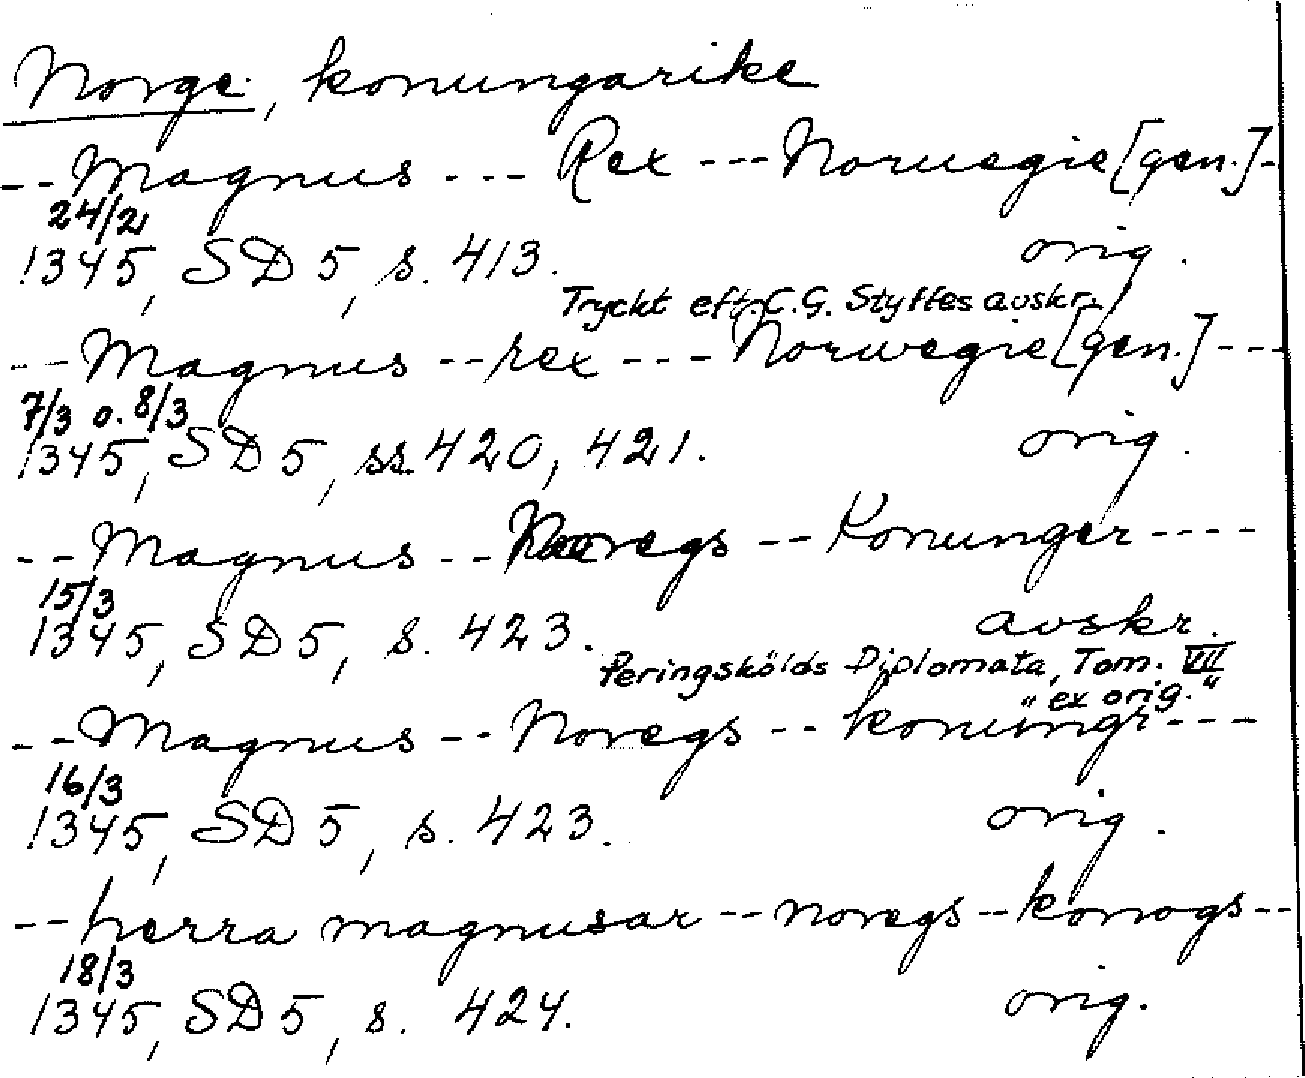 Norge, konungarike
-- Magnus --- Rex --- Noruegie [gen.] -
24/2
1345, SD 5, s. 413. orig.
Tryckt eft. C.G. Styffes avskr.
-- Magnus -- rex --- Norwegie [gen.] ---
7/3 o. 8/3
1345, SD 5, ss. 420, 421. orig.
-- Magnus -- Noregs -- Konunger ----
15/3
1345, SD 5, s. 423. avskr.
Peringskölds Diplomata, Tom. VII
"ex orig."
-- Magnus -- Noregs -- konungr ---
16/3
1345, SD 5, s. 423. orig.
-- herra magnusar -- noregs -- konogs --
18/3
1345, SD 5, s. 424. orig.